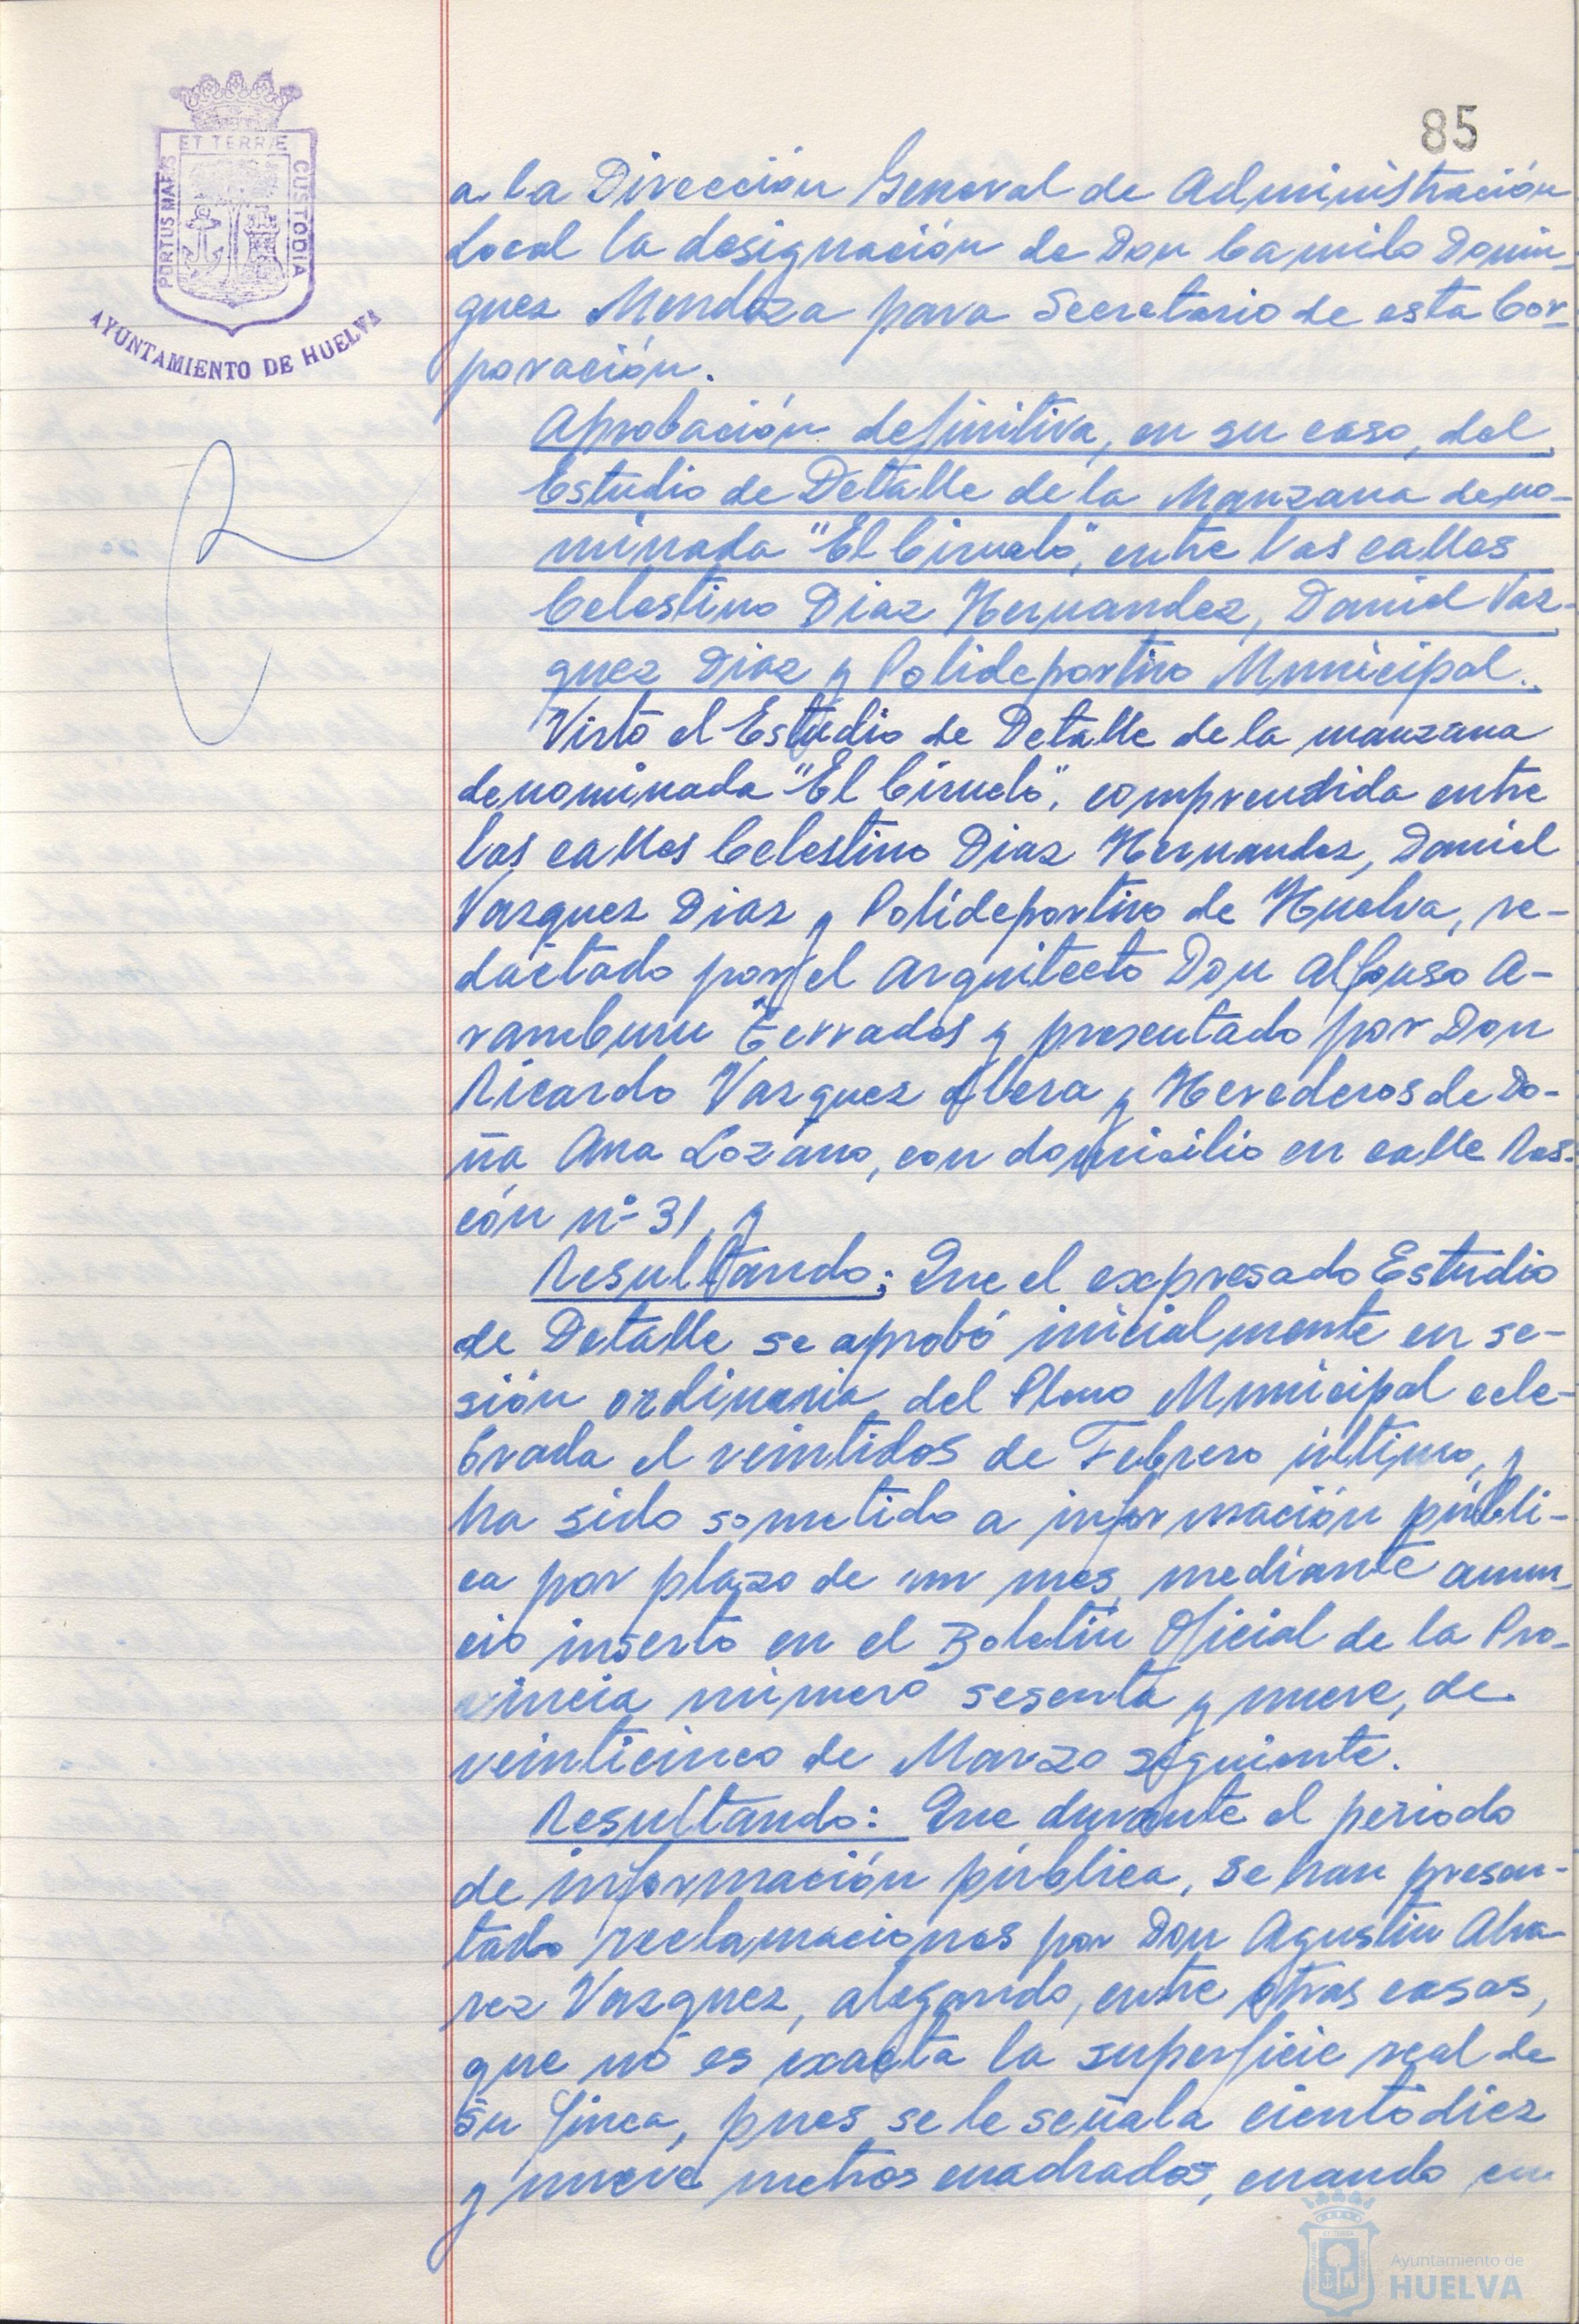 85
ET TERRÆ
PORTUS MARIS
CUSTODIA
AYUNTAMIENTO DE HUELVA
a la Dirección General de Administración
Local la designación de Don Camilo Domin-
guez Mendoza para Secretario de esta Cor-
poración.
Aprobación definitiva, en su caso, del
Estudio de Detalle de la Manzana deno-
minada "El Ciruelo", entre las calles
Celestino Diaz Hernandez, Daniel Vaz-
quez Diaz y Polideportivo Municipal.
Visto el Estudio de Detalle de la manzana
denominada "El Ciruelo", comprendida entre
las calles Celestino Diaz Hernandez, Daniel
Vazquez Diaz y Polideportivo de Huelva, re-
dactado por el Arquitecto Don Alfonso A-
ramburu Terrades y presentado por Don
Ricardo Vazquez Albera y Herederos de Do-
ña Ana Lozano, con domicilio en calle Ras-
cón nº 31, y
Resultando: Que el expresado Estudio
de Detalle se aprobó inicialmente en se-
sión ordinaria del Pleno Municipal cele-
brada el veintidos de Febrero último, y
ha sido sometido a información públi-
ca por plazo de un mes, mediante anun-
cio inserto en el Boletin Oficial de la Pro-
vincia número sesenta y nueve, de
veinticinco de Marzo siguiente.
Resultando: Que durante el periodo
de información pública, se han presen-
tado reclamaciones por Don Agustin Alva-
rez Vazquez, alegando, entre otras cosas,
que no es exacta la superficie real de
su finca, pues se le señala ciento diez
y nueve metros cuadrados, cuando en
Ayuntamiento de
HUELVA